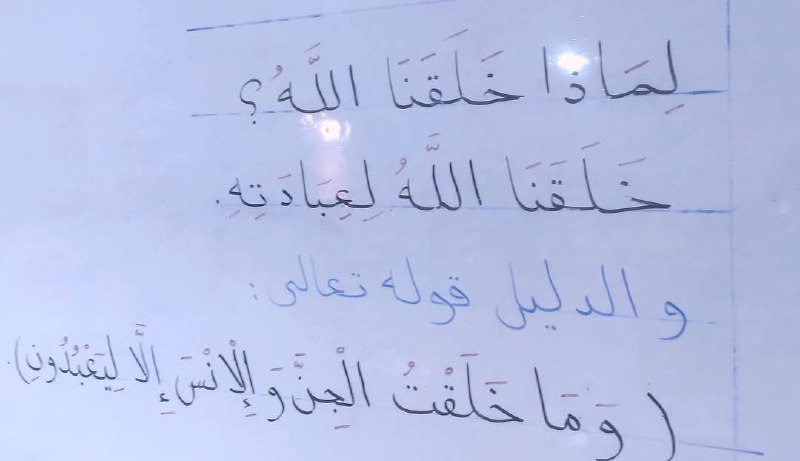 لِمَاذَا خَلَقَنَا اللَّهُ؟
خَلَقَنَا اللَّهُ لِعِبَادَتِهِ.
و الدليل قوله تعالى:
(وَمَا خَلَقْتُ الْجِنَّ وَالْإِنْسَ إِلَّا لِيَعْبُدُونِ).